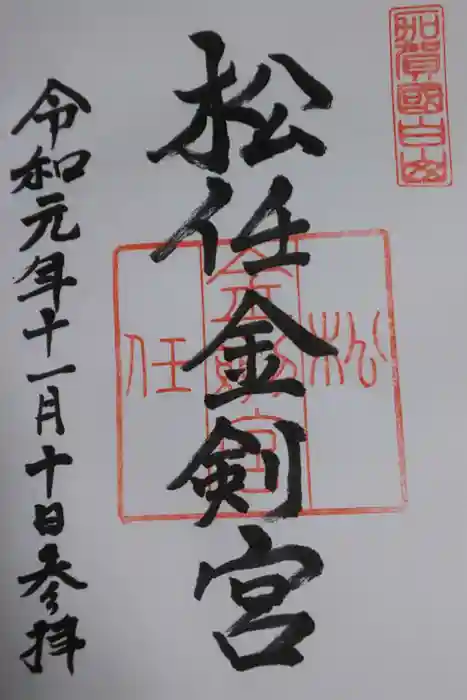 加賀國白山
松任金剣宮
松
金剣宮
任
令和元年十一月十日参拝